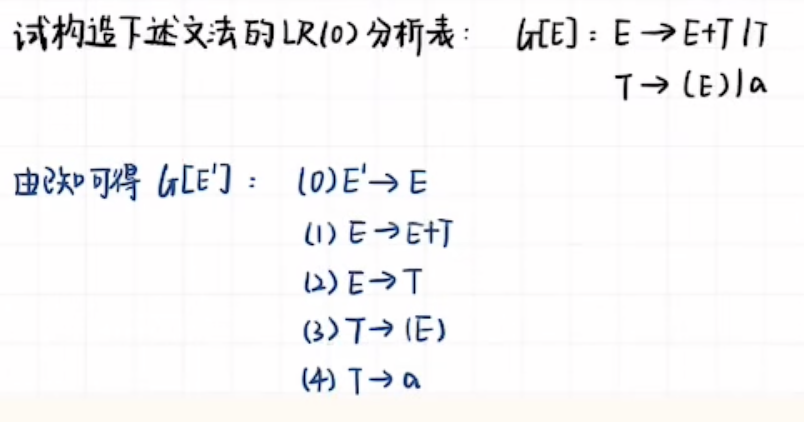 试构造下述文法的LR(0)分析表： G[E]：E→E+T|T
T→(E)|a
由已知可得 G[E']： (0)E'→E
(1) E→E+T
(2) E→T
(3) T→(E)
(4) T→a